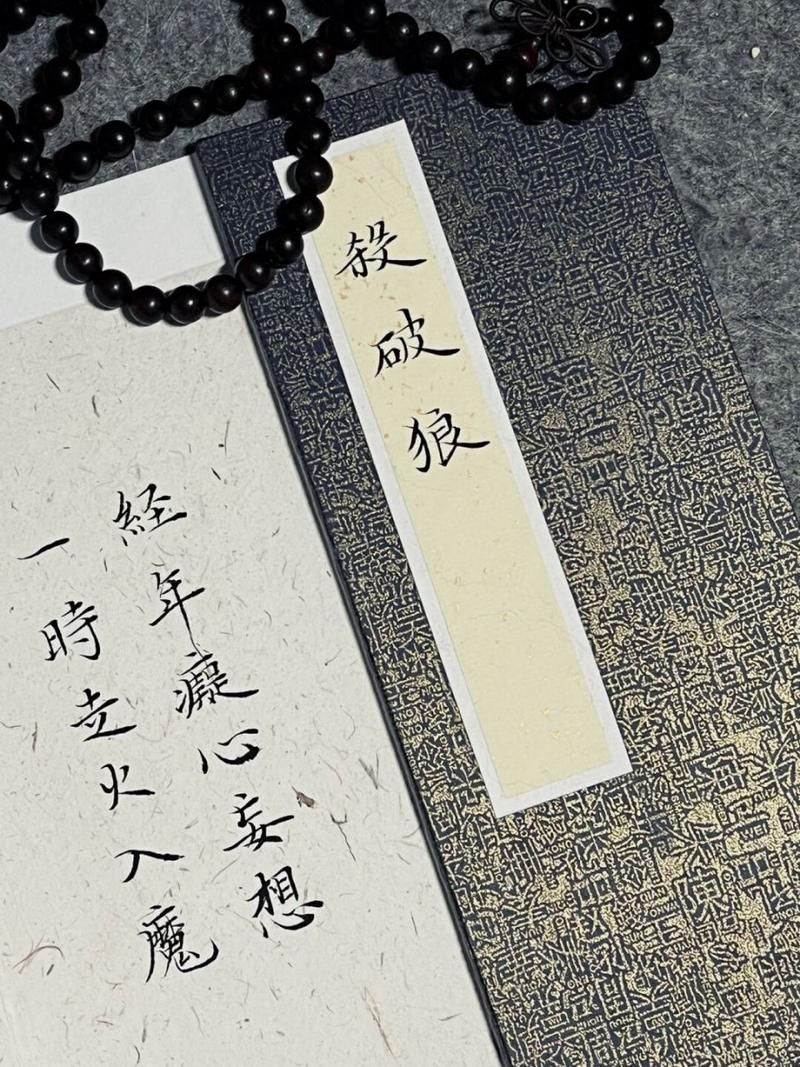 殺破狼
経年癡心妄想
一時走火入魔